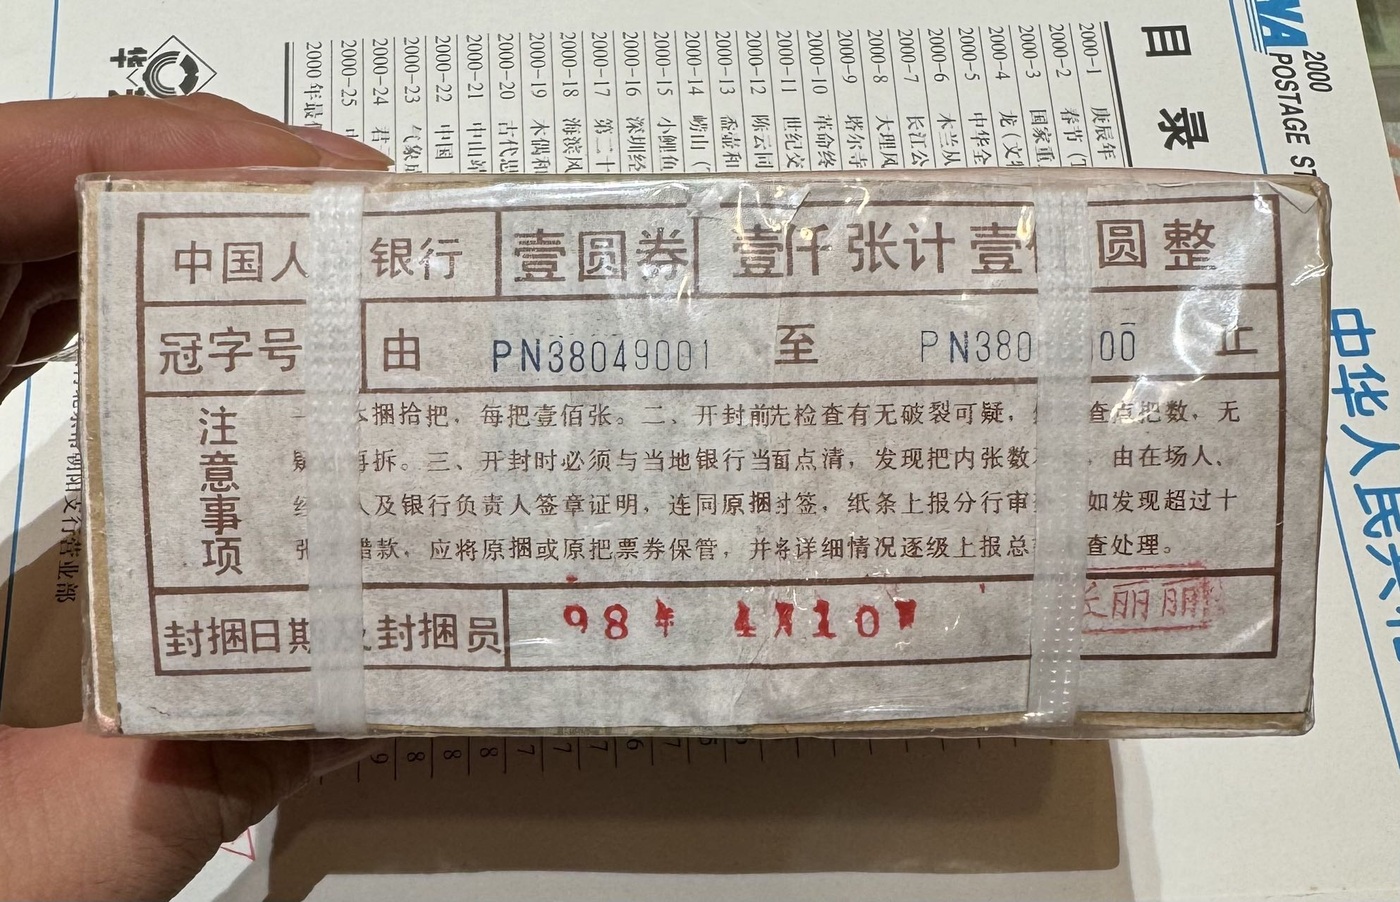 目 录
2000
POSTAGE
2000-1 庚辰年
2000-2 春节
2000-3 国家重
2000-4 龙(文物
2000-5 中华全
2000-6 木兰从
2000-7 长江公
2000-8 大理风
2000-9 塔尔寺
2000-10 革命终
2000-11 世纪交
2000-12 陈云同
2000-13 盉壶和
2000-14 崂山
2000-15 小鲤鱼
2000-16 深圳经
2000-17 第二十
2000-18 海滨风
2000-19 木偶和
2000-20 古代思
2000-21 中山靖
2000-22 中国
2000-23 气象成
2000-24 君
2000-25
2000年最
中国人 银行 壹圆券 壹仟张计壹 圆整
冠字号 由 PN38049001 至 PN380 00 止
注意事项
本捆拾把,每把壹佰张。二、开封前先检查有无破裂可疑, 查点把数,无
疑 再拆。三、开封时必须与当地银行当面点清,发现把内张数 ,由在场人、
经 人及银行负责人签章证明,连同原捆封签,纸条上报分行审 如发现超过十
张 错款,应将原捆或原把票券保管,并将详细情况逐级上报总 查处理。
封捆日期 及封捆员 98年 4月10日
丽丽
中华人民共